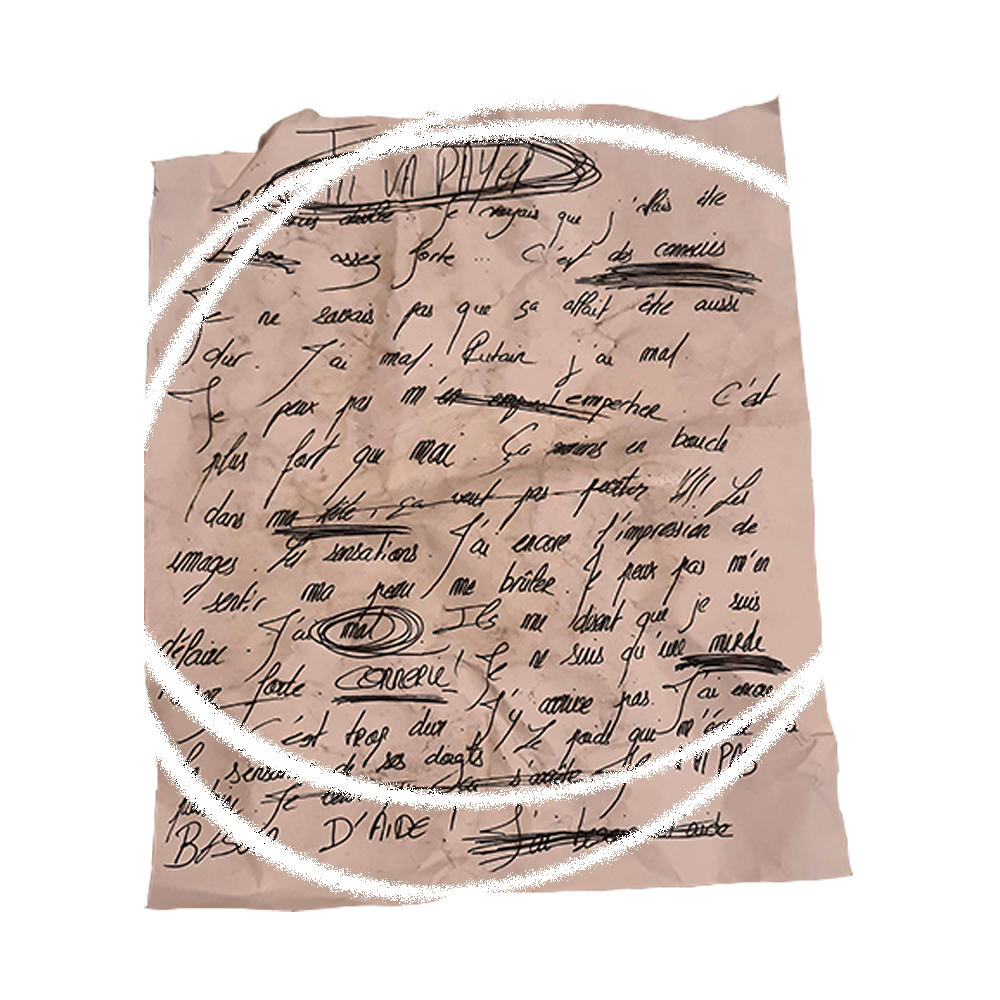 IL VA PAYER
Je voyais que j'allais être
assez forte ... C'est des conneries
Je ne savais pas que ça allait être aussi
dur. J'ai mal. Putain j'ai mal.
Je peux pas m'en empecher. C'est
plus fort que moi. Ça en boucle
dans ma tête, ça veut pas partir !!!! Les
images. Les sensations. J'ai encore l'impression de
sentir ma peau me brûler. Je peux pas m'en
défaire. J'ai mal Ils me disent que je suis
forte. CONNERIE! Je ne suis qu'une merde
J'arrive pas. J'ai encore
c'est trop dur !! Le poids qui
de ses doigts PAS
Je s'arrête
BESOIN D'AIDE! J'ai besoin d'aide